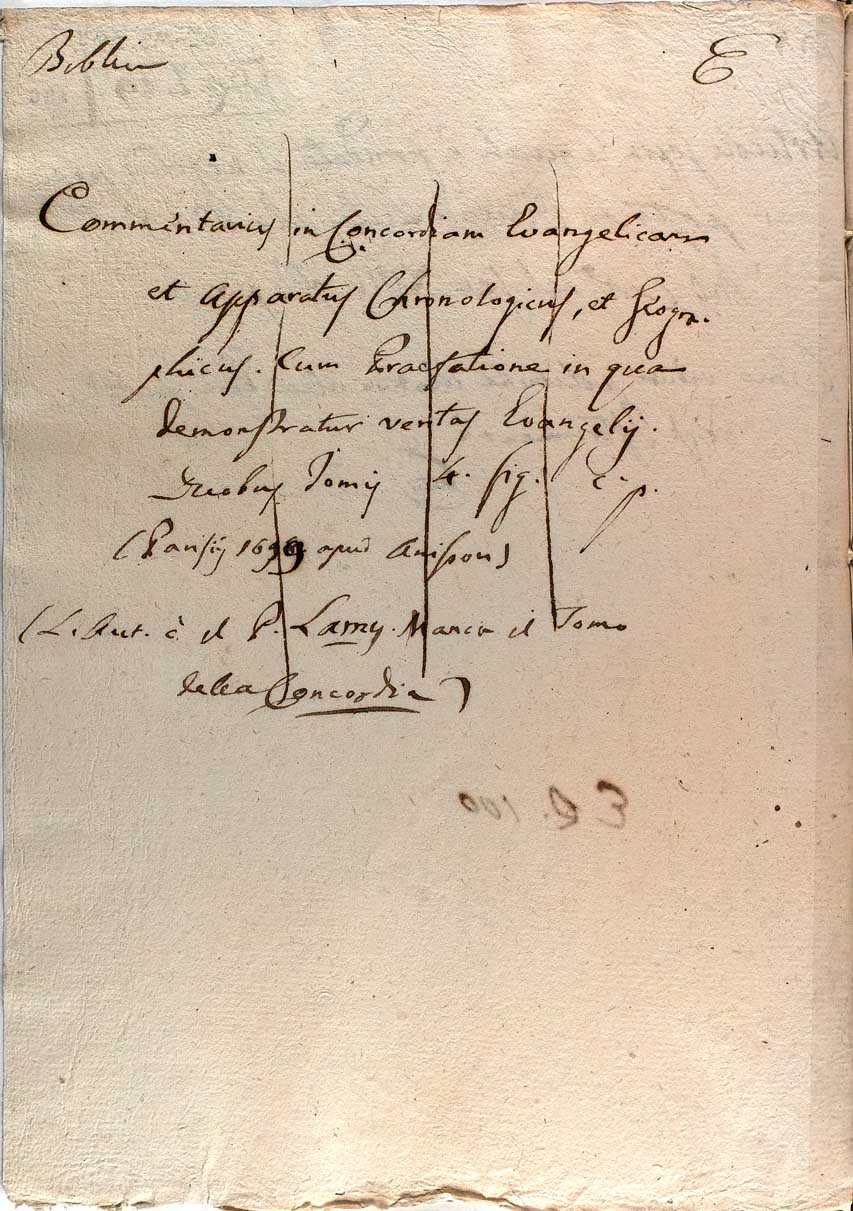 Biblia E
Commentarius in Concordiam Evangelicam
et Apparatus Chronologicus, et Geogra-
phicus. Cum Praefatione in qua
demonstratur veritas Evangelij.
Duobus Tomis 4. fig. c. p.
(Parisijs 1699 apud Anisson)
(L. Aut. è il P. Lamy. Manca il Tomo
della Concordia)
E Q. 100